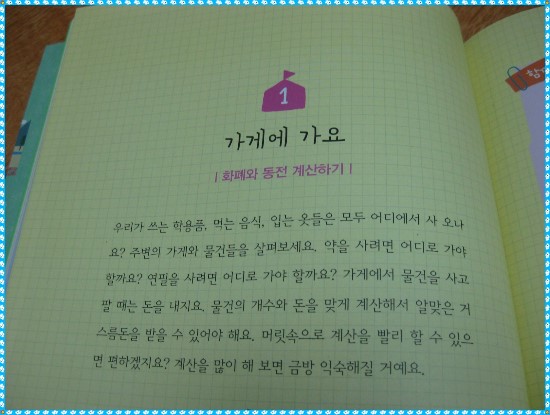 1
가게에 가요
| 화폐와 동전 계산하기 |
우리가 쓰는 학용품, 먹는 음식, 입는 옷들은 모두 어디에서 사 오나
요? 주변의 가게와 물건들을 살펴보세요. 약을 사려면 어디로 가야
할까요? 연필을 사려면 어디로 가야 할까요? 가게에서 물건을 사고
팔 때는 돈을 내지요. 물건의 개수와 돈을 맞게 계산해서 알맞은 거
스름돈을 받을 수 있어야 해요. 머릿속으로 계산을 빨리 할 수 있으
면 편하겠지요? 계산을 많이 해 보면 금방 익숙해질 거예요.